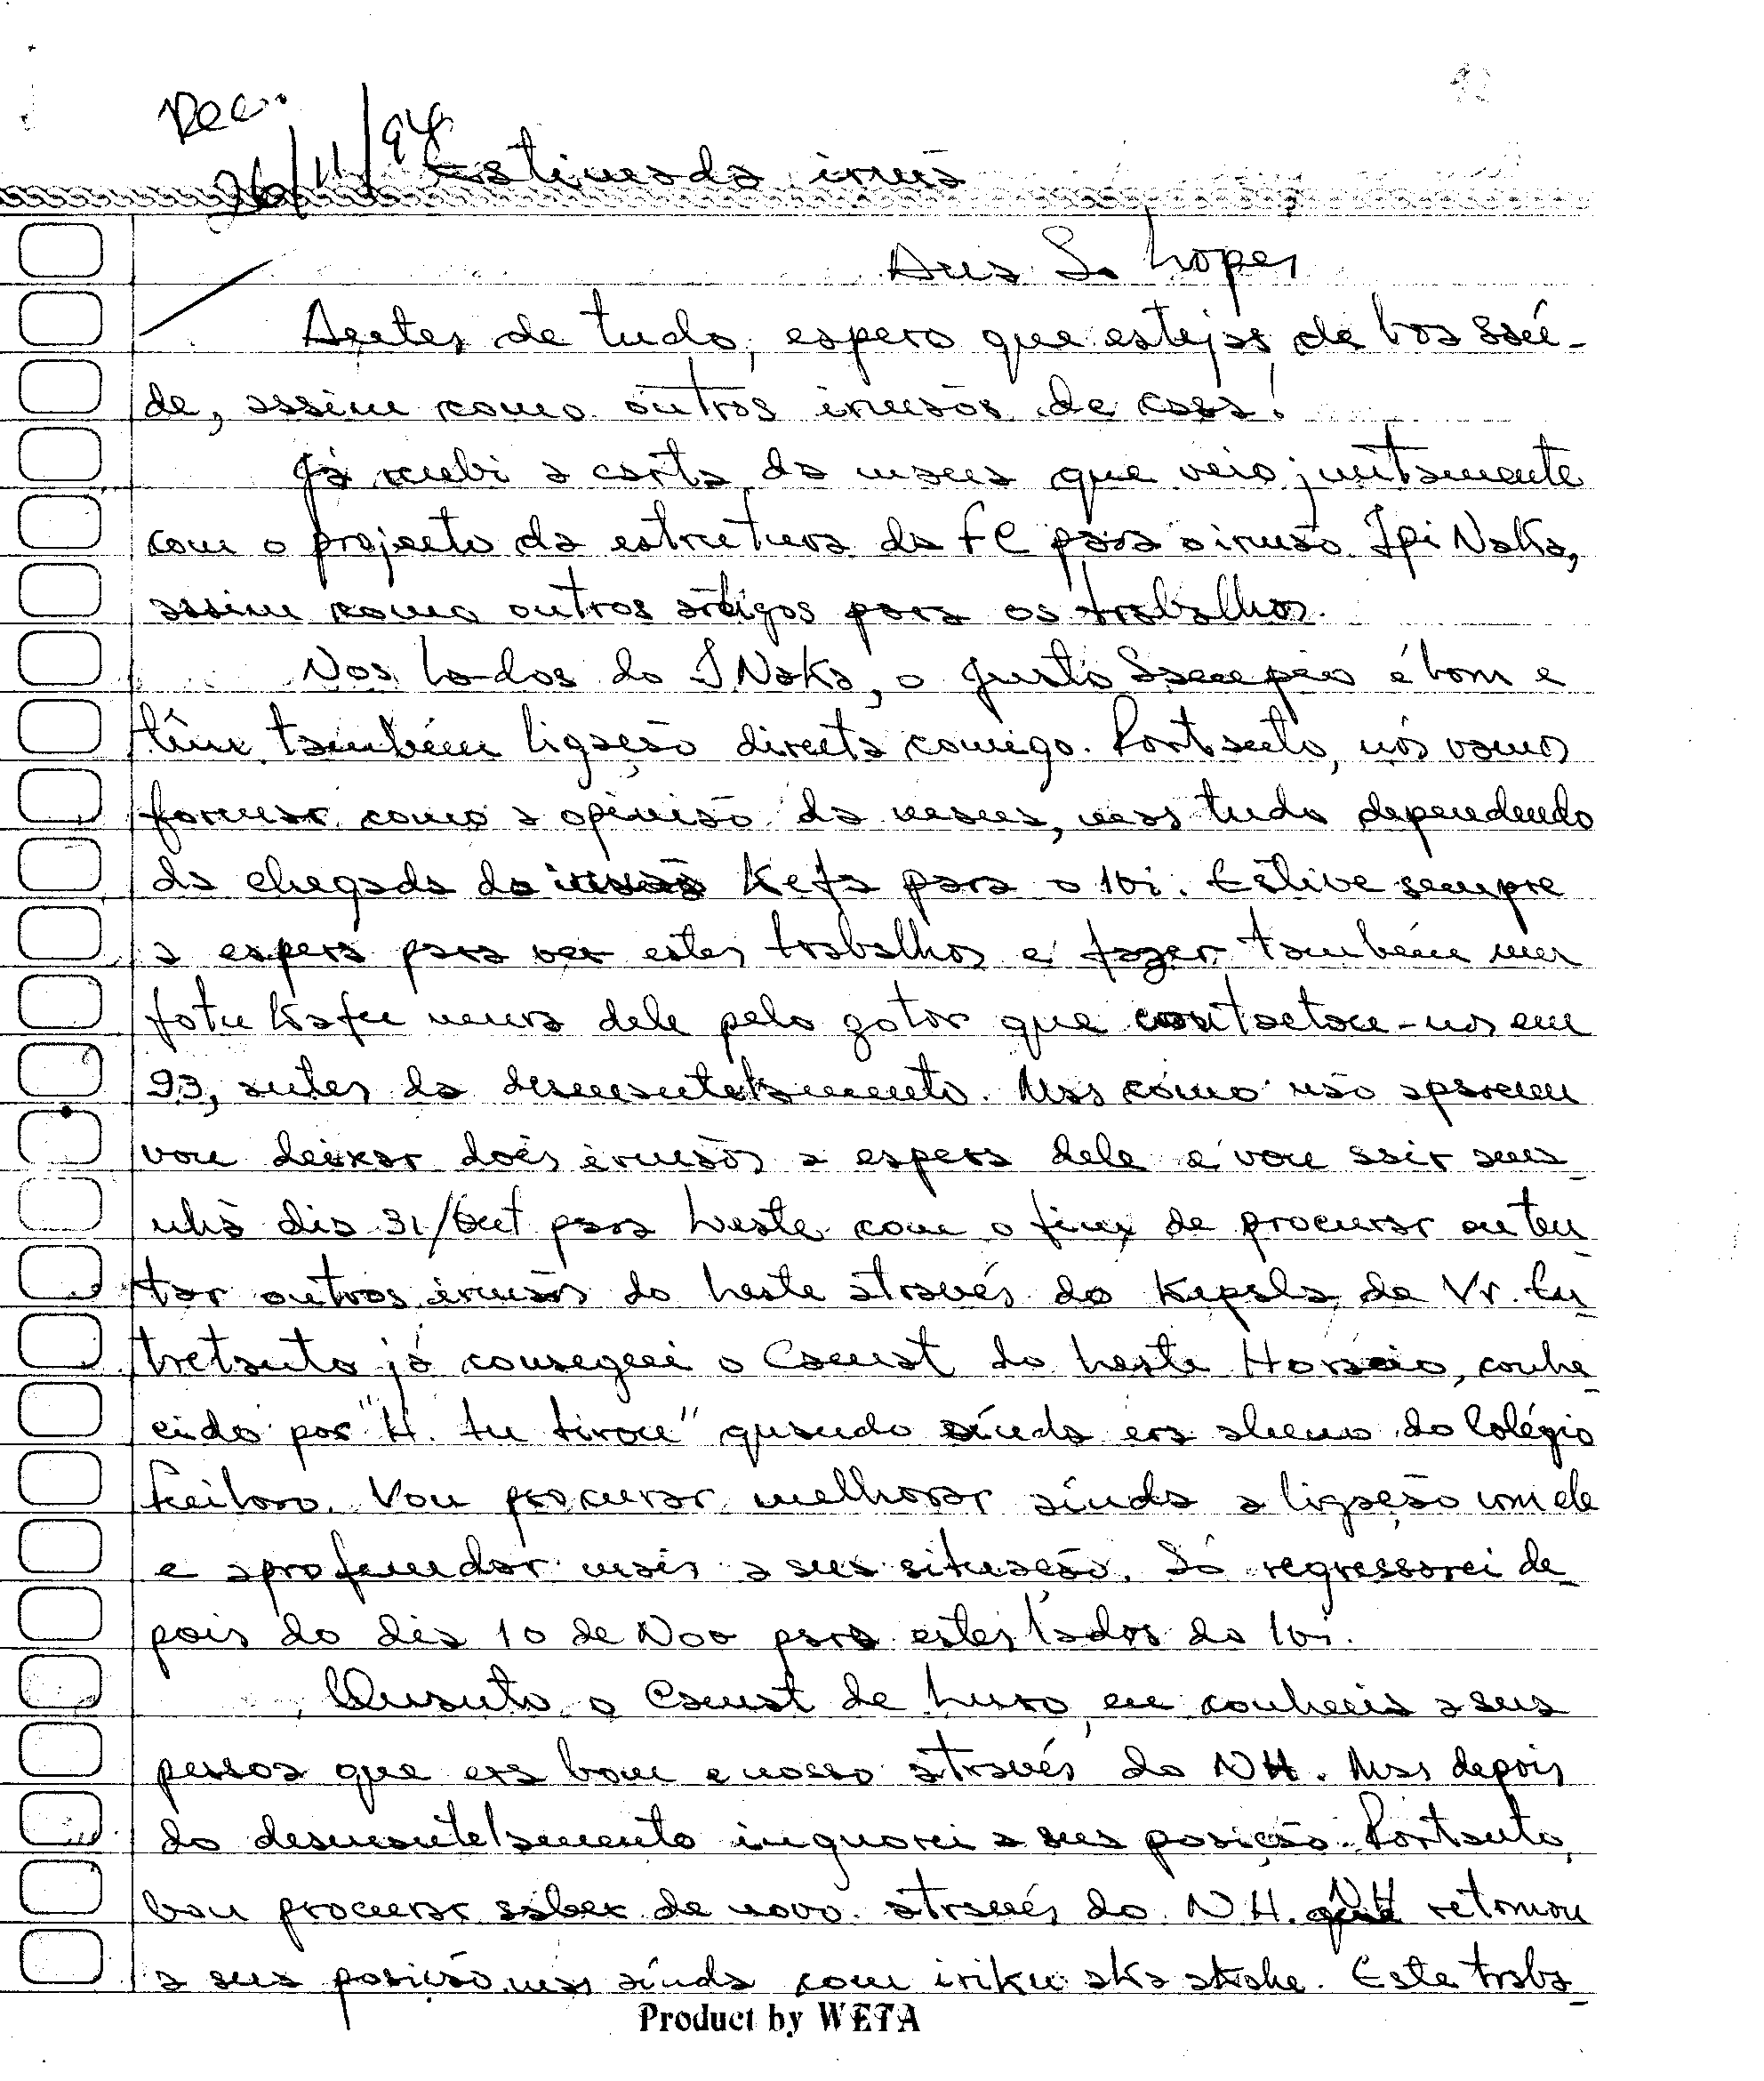 Rec.
26/11/94
Estimada irmã
Ana S. Lopes
Antes de tudo, espero que estejas de boa saú-
de, assim como outros irmãos de casa!
Já recebi a carta da mana que veio juntamente
com o projecto da estrutura da FC para o irmão Ipi Naka,
assim como outros artigos para os trabalhos.
Nos lados do I Naka, o Justo Sampaio é bom e
têm também ligação directa comigo. Portanto, nós vamos
formar como a opinião da mana, mas tudo dependendo
da chegada do irmão Kefa para o 10i. Estive sempre
a espera para ver estes trabalhos e fazer também
fotu kafu dele pelo gotor que contactou-nos em
93, antes do desmantelamento. Mas como não apareceu
vou deixar dois irmãos a espera dele e vou sair ama_
nhã dia 31/Out para Leste com o fim de procurar ou ten_
tar outros irmãos do Leste através do Kapala de Vr. En_
tretanto já consegui o Camat do Leste Horacio, conhe_
cido por "H. tu tirou" quando aínda era aluno do Colégio
. Vou procurar melhorar aínda a ligação com ele
e aprofundar mais a sua situação. Só regressarei de_
pois do dia 10 de Nov para estes lados do 10i.
Quanto o Camat de Luro, eu conhecia a sua
pessoa que era bom e nosso através do NH. Mas depois
do desmantelamento inguorei a sua posição. Portanto,
vou procurar saber de novo através do NH. NH retomou
a sua posição mas aínda com iriku aka atahe. Este traba_
Product by WETA